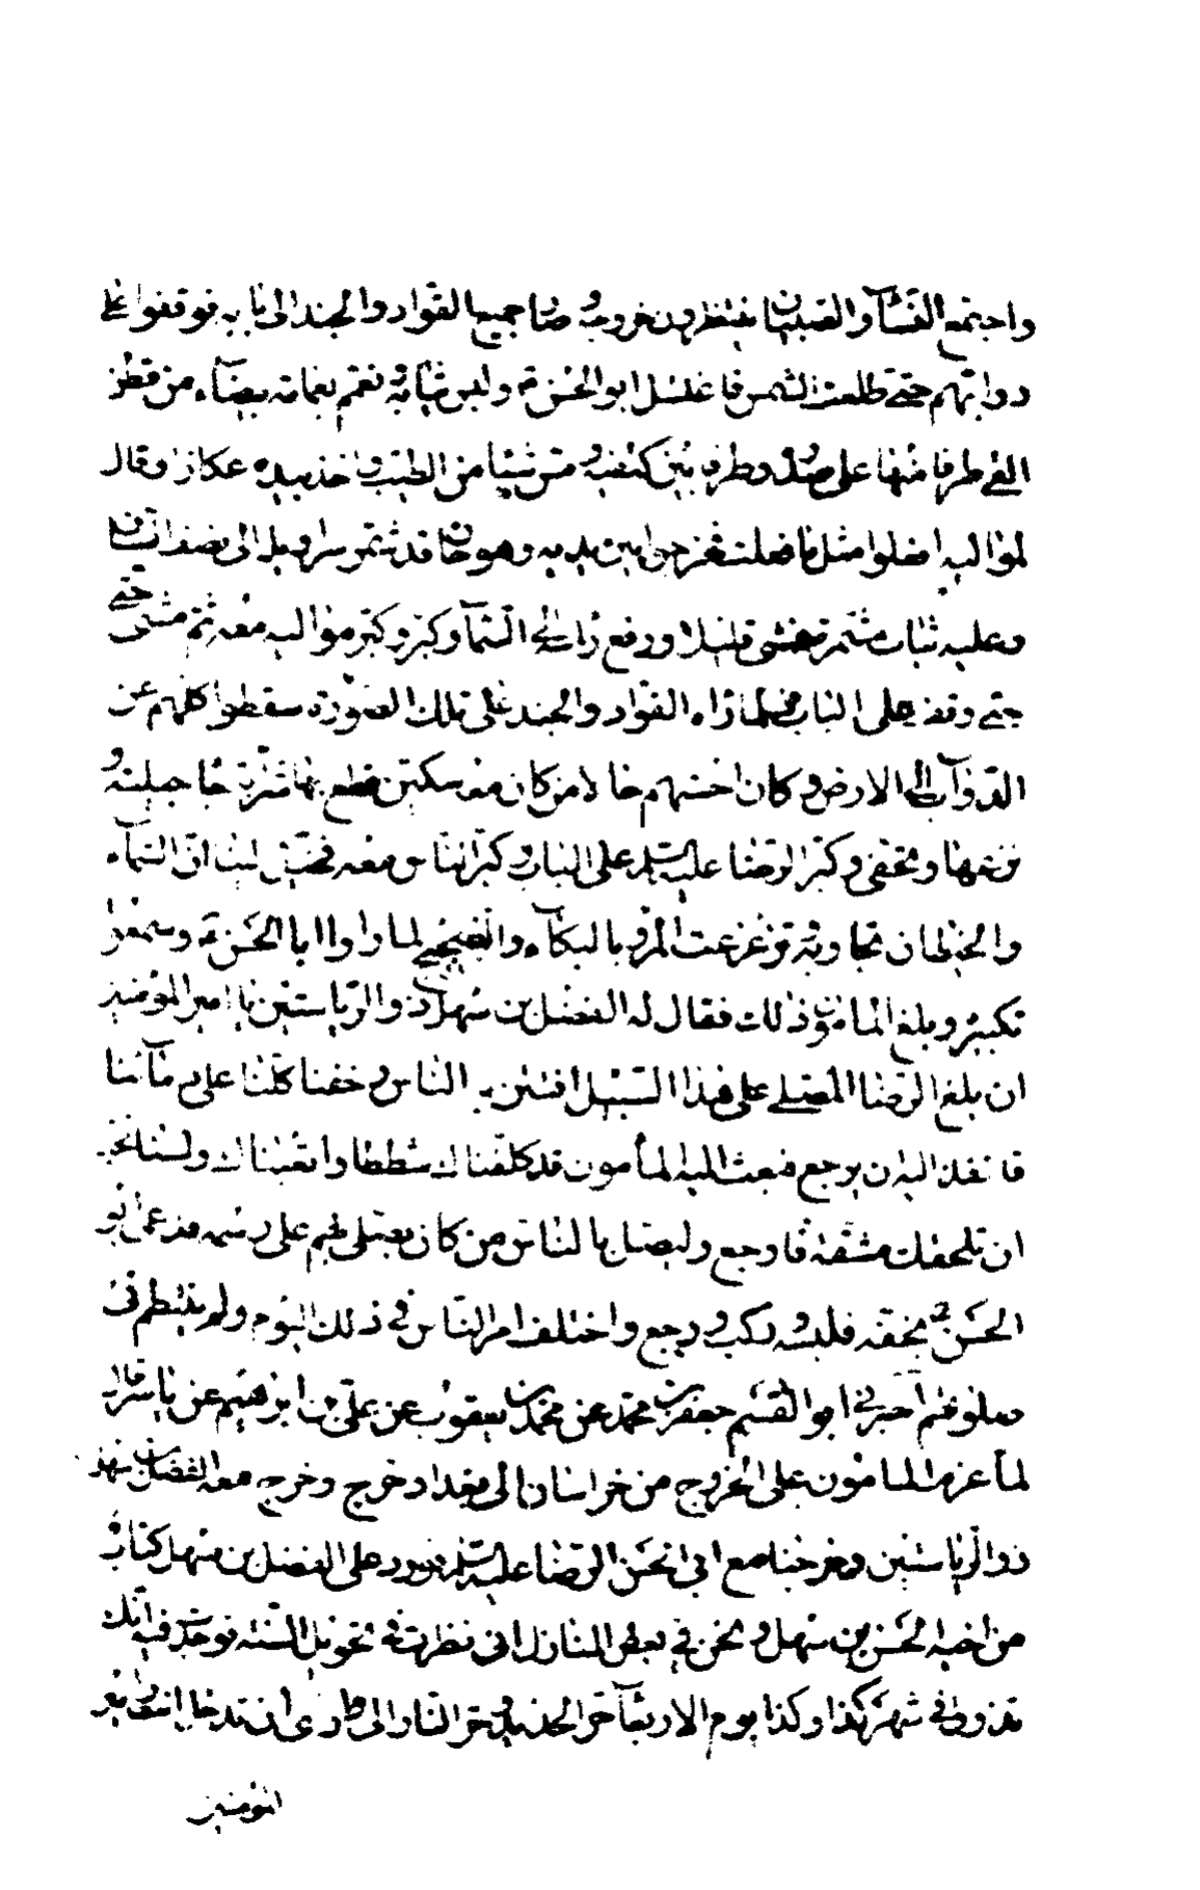 واجتمع النسآء والصبيان ينتظرون خروجه وصار جميع القواد والجند الى بابه فوقفوا على
دوابهم حتى طلعت الشمس فاغتسل ابو الحسن ع ولبس ثيابه تعمم بعمامة بيضآء من قطن
القى طرفا منها على صدره وطرفا بين كتفيه ومس شيئا من الطيب واخذ بيده عكازا وقال
لمواليه افعلوا مثل ما فعلت فخرجوا بين يديه وهو حاف قد شمر سراويله الى نصف الساق
وعليه ثياب مشمرة فمشى قليلا ورفع راسه الى السمآء وكبر وكبر مواليه معه ثم مشى حتى
حتى وقف على الباب فلما راه القواد والجند على تلك الصورة سقطوا كلهم عن
الدوآب الى الارض وكان احسنهم حالا من كان معه سكين قطع بها شرابة حاجيلته
ونزعها وتحفى وكبر الرضا عليه السلم على الباب وكبر الناس معه فخيل لنا ان السمآء
والحيطان تجاوبه وتزعزعت المرو بالبكآء والضجيج لما راوا ابا الحسن ع وسمعوا
تكبيره وبلغ المامون ذلك فقال له الفضل بن سهل ذو الرياستين يا امير المؤمنين
ان بلغ الرضا المصلى على هذا السبيل افتتن به الناس وخفنا كلنا على دمآئنا
فانفذ اليه ان يرجع فبعث اليه المأمون قد كلفناك شططا واتعبناك ولسنا نحب
ان تلحقك مشقة فارجع وليصل بالناس من كان يصلى بهم على رسمه فدعى ابو
الحسن ع بخفه فلبسه وركب ورجع واختلف امر الناس فى ذلك اليوم ولم ينتظم فى
صلوتهم اخبرنى ابو القسم جعفر بن محمد عن محمد بن يعقوب عن على بن ابرهيم عن ياسر قال
لمآ عزم المامون على الخروج من خراسان الى بغداد خرج وخرج معه الفضل بن سهل
ذو الرياستين وخرجنا مع ابى الحسن الرضا عليه السلم فورد على الفضل بن سهل كتاب
من اخيه الحسن بن سهل ونحن فى بعض المنازل انى نظرت فى تحويل السنة فوجدت فيه انك
تذوق فى شهر كذا وكذا يوم الاربعآء حر الحديد وحر النار وارى ان تدخل انت وامير
المؤمنين